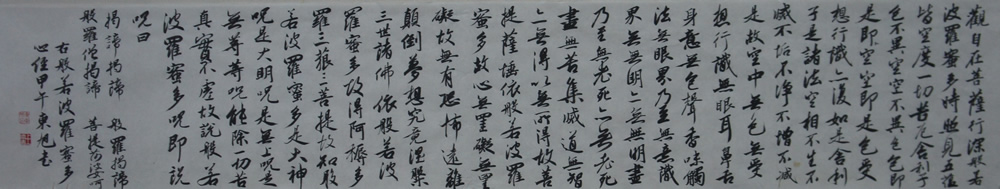 觀自在菩薩行深般若
波羅蜜多時照見五蘊
皆空度一切苦厄舍利子
色不異空空不異色色即
是空空即是色受
想行識亦復如是舍利
子是諸法空相不生不
滅不垢不淨不增不減
是故空中無色無受
想行識無眼耳鼻舌
身意無色聲香味觸
法無眼界乃至無意識
界無無明亦無無明盡
乃至無老死亦無老死
盡無苦集滅道無智
亦無得以無所得故菩
提薩埵依般若波羅
蜜多故心無罣礙無罣
礙故無有恐怖遠離
顛倒夢想究竟涅槃
三世諸佛依般若波
羅蜜多故得阿耨多
羅三藐三菩提故知般
若波羅蜜多是大神
呪是大明呪是無上呪是
無等等呪能除一切苦
真實不虛故說般若
波羅蜜多呪即說
呪曰
揭諦揭諦 般羅揭諦
般羅僧揭諦 菩提薩婆訶
右般若波羅蜜多
心經甲午東旭書